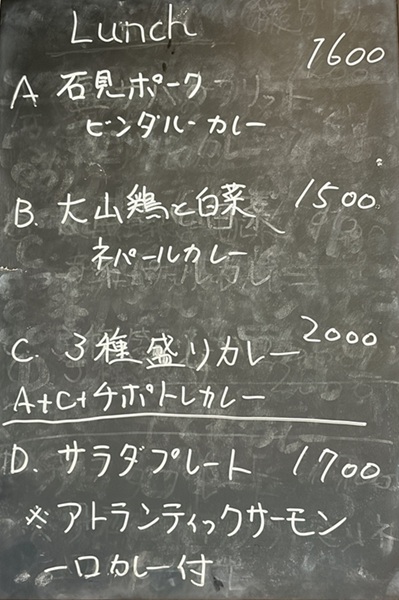 Lunch
1600
A 石見ポーク
ビンダルーカレー
B. 大山鶏と白菜 1500
ネパールカレー
C. 3種盛りカレー 2000
A+C+チポトレカレー
D. サラダプレート 1700
※アトランティックサーモン
一口カレー付